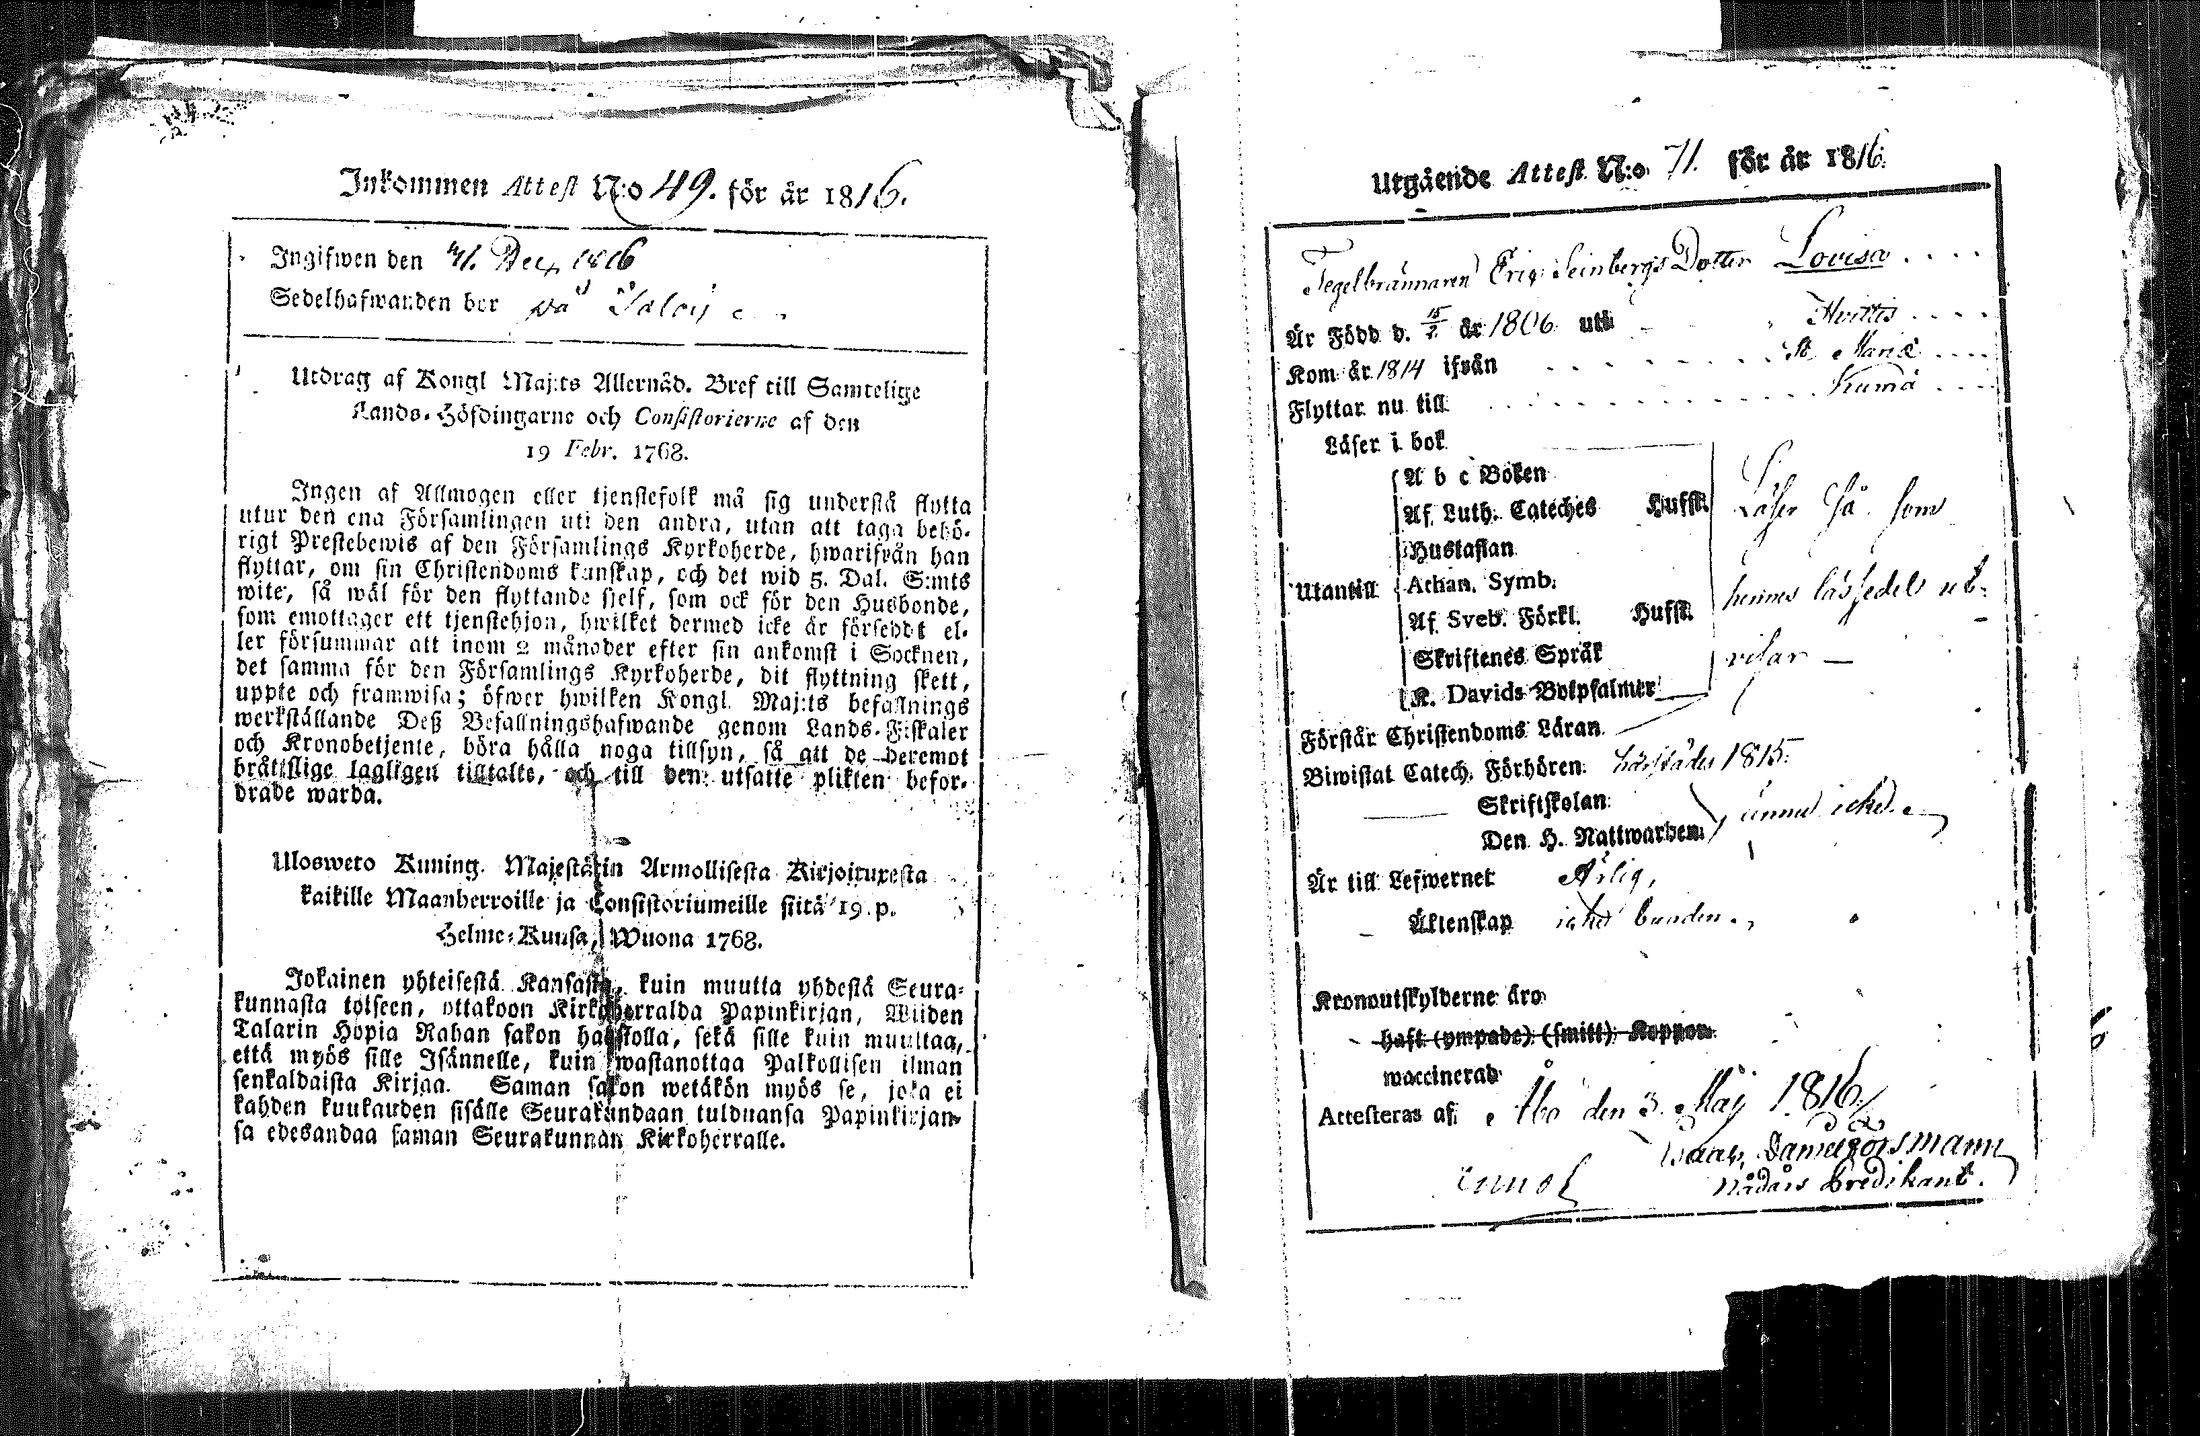 Inkommen Attest N:o 49. för år 1816.
Ingifwen den 31. Dec. 1816
Sedelhafwanden bor på
Utdrag af Kongl Maj:ts Allernåd. Bref till Samtelige
Lands-Höfdingarne och Consistorierne af den
19 Febr. 1768.
Ingen af Allmogen eller tjenstefolk må sig understå flytta
utur den ena Församlingen uti den andra, utan att taga behö-
rigt Prestebewis af den Församlings Kyrkoherde, hwarifrån han
flyttar, om sin Christendoms kunskap, och det wid 5. Dal. S:mts
wite, så wäl för den flyttande sjelf, som ock för den Husbonde,
som emottager ett tjenstehjon, hwilket dermed icke är försedbt el-
ler försummar att inom 2 månader efter sin ankomst i Socknen,
det samma för den Församlings Kyrkoherde, dit flyttning skett,
uppte och framwisa; öfwer hwilken Kongl. Maj:ts befallnings
werkställande Deß Befallningshafwande genom Lands-Fiskaler
och Kronobetjente, böra hålla noga tillsyn, så att de deremot
bråttslige lagligen tilltalte, och till den utsatte plikten befor-
drade warda.
Ulosweto Kuning. Majestätin Armollisesta Kirjoituxesta
kaikille Maanherroille ja Consistoriumeille siitä 19 p.
Helme-Kuusa, Wuona 1768.
Jokainen yhteisestä Kansasta, kuin muutta yhdestä Seura-
kunnasta toiseen, ottakoon Kirkoherralda Papinkirjan, Wiiden
Talarin Hopia Rahan sakon haastolla, sekä sille kuin muuttaa,
että myös sille Isännelle, kuin wastanottaa Palkollisen ilman
senkaldaista Kirjaa. Saman sakon wetäkön myös se, joka ei
kahden kuukauden sisälle Seurakundaan tulduansa Papinkirjan-
sa edesandaa saman Seurakunnan Kirkoherralle.
Utgående Attest N:o 71. för år 1816.
Tegelbrännaren Eric Seinbergs Dotter Lovisa
Är Född d. 15/2. år 1806 uti Hvittis
Kom år 1814 ifrån St Mariæ
Flyttar nu till Kumå
Läser i bok
A b c Boken
Af Luth. Cateches Hufst.
Hustaflan
Utantill Athan. Symb.
Af Sveb. Förkl. Hufst.
Skriftenes Språk
K. Davids Botpsalmer
Läser så som
hennes läs sedel ut-
visar —
Förstår Christendoms Läran
Biwistat Catech. Förhören härstädes 1815.
Skriftskolan
Den H. Nattwarden
ännu icke
Är till Lefwernet Ärlig,
Äktenskap icke bunden.
Kronoutskylderne äro
haft (ympade) (smitt) Koppor
waccinerad
Attesteras af, Åbo den 3. Maij 1816.
Forsmann
Nådårs Predikant.